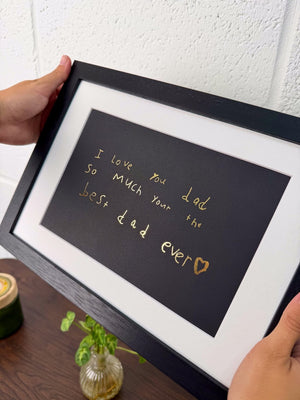 I love you dad
so much your the
best dad ever♡